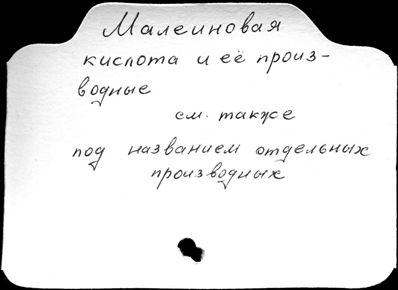 Малеиновая
кислота и её произ-
водные
см. также
под названием отдельных
производных